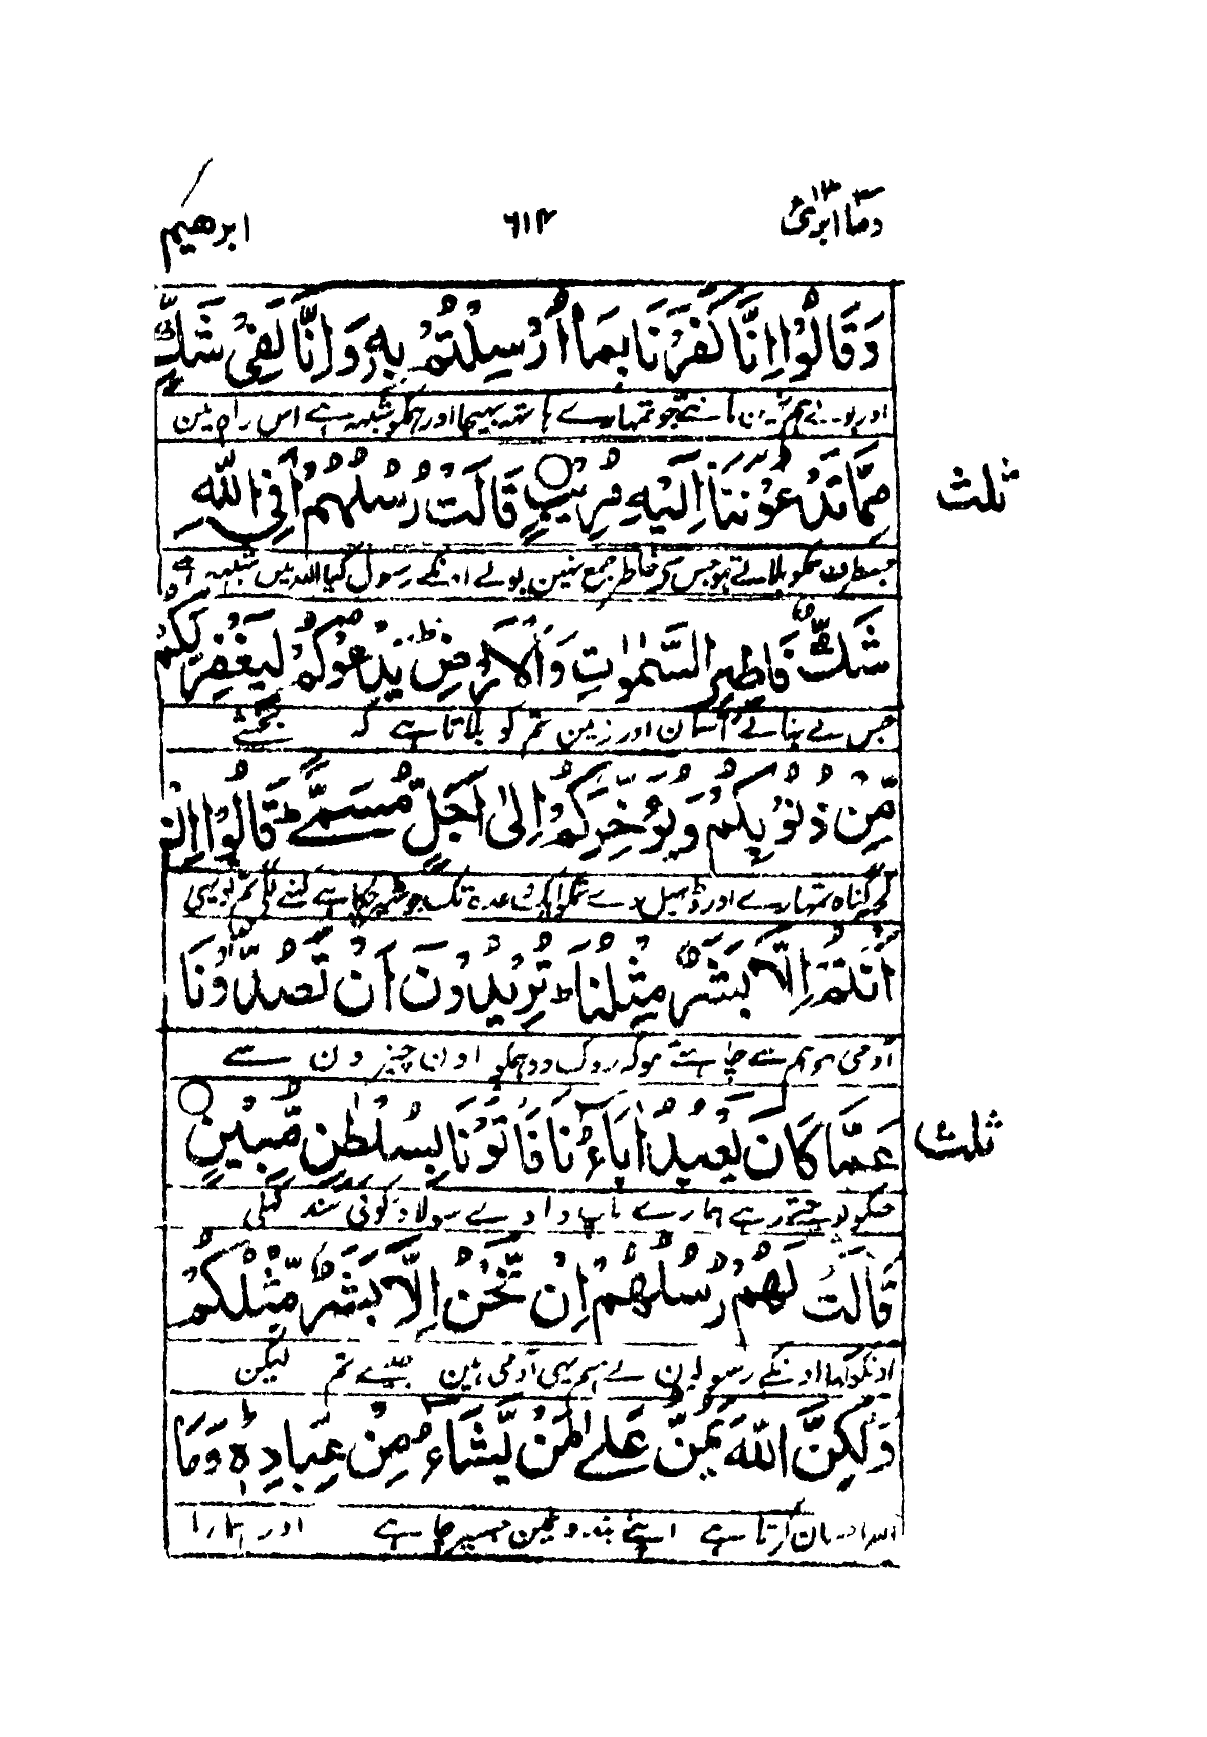 وما ابرئ ١٣ ٦١٤ ابرهيم
وَقَالُوْا اِنَّا كَفَرْنَا بِمَاۤ اُرْسِلْتُمْ بِهٖ وَاِنَّا لَفِيْ شَكٍّ
اور بولے ہم نہین مانتے جو تمہارے ہاتھ بھیجا اور ہمکو شبہہ ہے اس راہ مین
مِّمَّا تَدْعُوْنَنَاۤ اِلَيْهِ مُرِيْبٍ قَالَتْ رُسُلُهُمْ اَفِي اللّٰهِ
ثلث
جسطرف ہمکو بلاتے ہو جس سے خاطر جمع نہین بولے اونکے رسول کیا اللہ مین شبہہ ہے
شَكٌّ فَاطِرِ السَّمٰوٰتِ وَالْاَرْضِ ؕ يَدْعُوْكُمْ لِيَغْفِرَ لَكُمْ
جس نے بنائے آسمان اور زمین تم کو بلاتا ہے کہ بخشے
مِّنْ ذُنُوْبِكُمْ وَيُؤَخِّرَكُمْ اِلٰۤى اَجَلٍ مُّسَمًّى ؕ قَالُوْا اِنْ
کچھ گناہ تمہارے اور ڈھیل دے تمکو ایک وعدہ تک جو ٹھہر چکا ہے کہنے لگے تم تو یہی
اَنْتُمْ اِلَّا بَشَرٌ مِّثْلُنَا ؕ تُرِيْدُوْنَ اَنْ تَصُدُّوْنَا
آدمی ہو ہم سے چاہتے ہو کہ روک دو ہمکو اون چیزون سے
عَمَّا كَانَ يَعْبُدُ اٰبَآؤُنَا فَاْتُوْنَا بِسُلْطٰنٍ مُّبِيْنٍ
ثلث
جنکو پوجتے رہے ہمارے باپ دادے سو لاؤ کوئی سند کھلی
قَالَتْ لَهُمْ رُسُلُهُمْ اِنْ نَّحْنُ اِلَّا بَشَرٌ مِّثْلُكُمْ
اونکو کہا اونکے رسولون نے ہم یہی آدمی ہین جیسے تم لیکن
وَلٰكِنَّ اللّٰهَ يَمُنُّ عَلٰى مَنْ يَّشَآءُ مِنْ عِبَادِهٖ ؕ وَمَا
اللہ احسان کرتا ہے اپنے بندونمین جسپر چاہے اور ہمارا